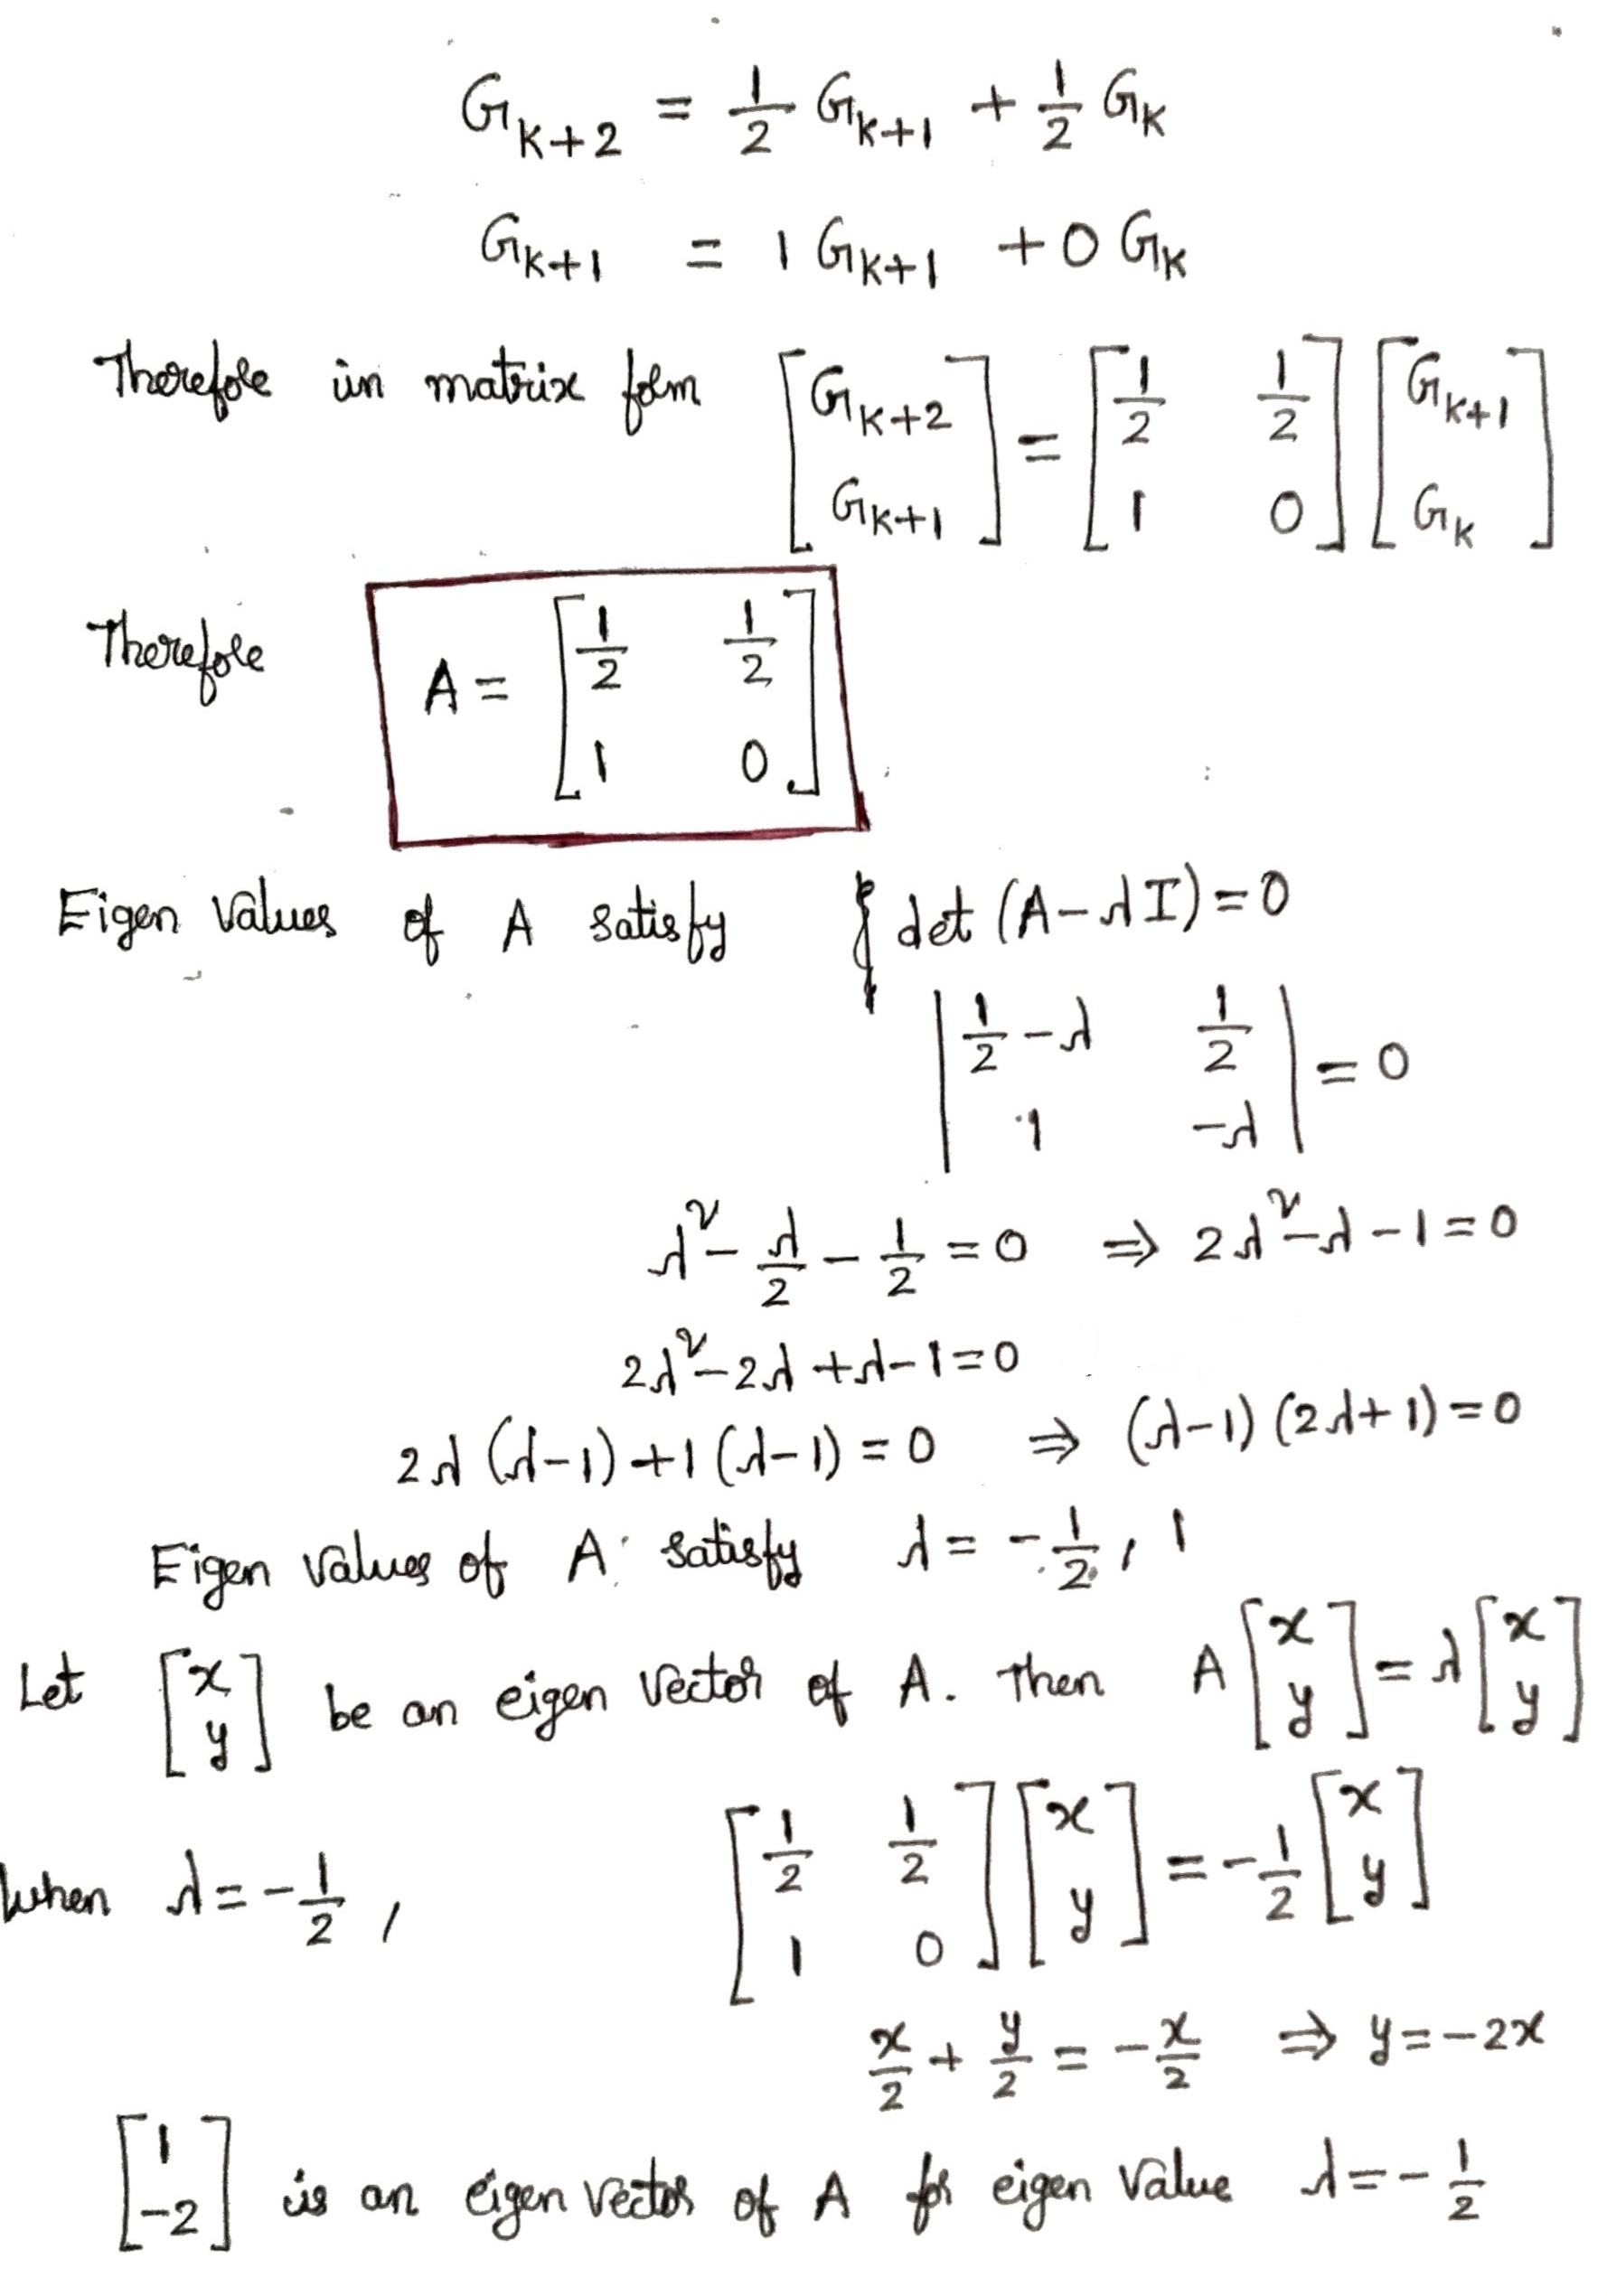 G_{k+2} = 1/2 G_{k+1} + 1/2 G_k
G_{k+1} = 1 G_{k+1} + 0 G_k
Therefore in matrix form [G_{k+2}; G_{k+1}] = [1/2 1/2; 1 0] [G_{k+1}; G_k]
Therefore A = [1/2 1/2; 1 0]
Eigen values of A satisfy { det (A-λI) = 0
|1/2-λ 1/2; 1 -λ| = 0
λ² - λ/2 - 1/2 = 0 ⇒ 2λ²-λ-1=0
2λ²-2λ+λ-1=0
2λ(λ-1)+1(λ-1)=0 ⇒ (λ-1)(2λ+1)=0
Eigen values of A satisfy λ = -1/2, 1
Let [x; y] be an eigen vector of A. Then A [x; y] = λ [x; y]
When λ = -1/2, [1/2 1/2; 1 0] [x; y] = -1/2 [x; y]
x/2 + y/2 = -x/2 ⇒ y = -2x
[1; -2] is an eigen vector of A for eigen value λ = -1/2